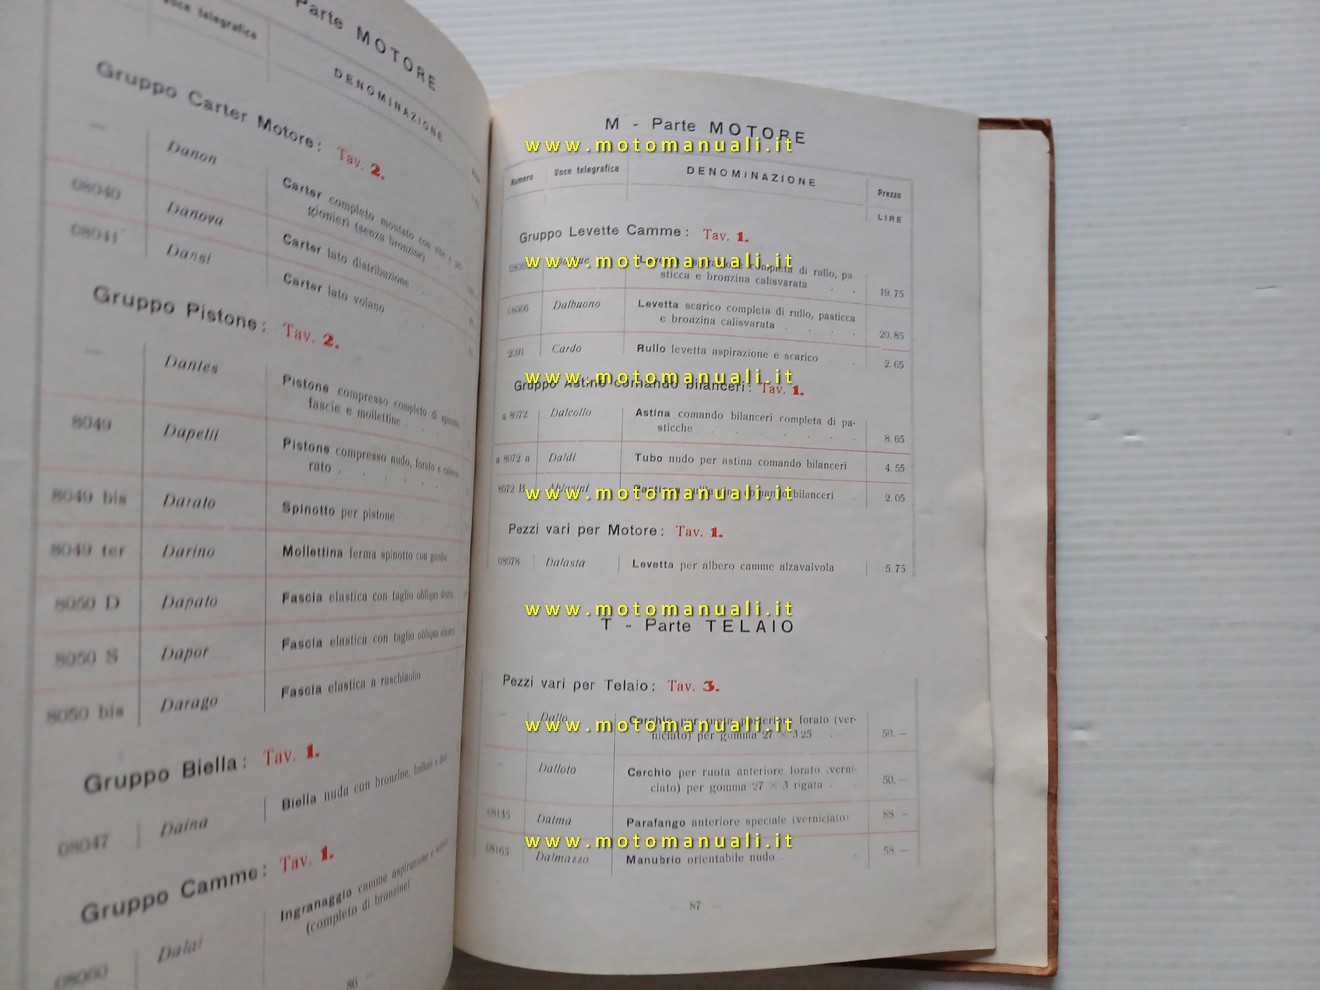 Parte MOTORE
Voce telegrafica
DENOMINAZIONE
Gruppo Carter Motore: Tav. 2.
— Danon Carter completo montato con vite e pri-
gionieri (senza bronzine)
08040 Danova Carter lato distribuzione
08041 Dansi Carter lato volano
Gruppo Pistone: Tav. 2.
— Dantes Pistone compresso completo di spinotto,
fascie e mollettine
8049 Dapelli Pistone compresso nudo, forato e
rato
8049 bis Darato Spinotto per pistone
8049 ter Darino Mollettina ferma spinotto con
8050 D Dapato Fascia elastica con taglio obliquo destro
8050 S Dapor Fascia elastica con taglio obliquo
8050 bis Darago Fascia elastica a raschiaolio
Gruppo Biella: Tav. 1.
08047 Daina Biella nuda con bronzine, bulloni e dadi
Gruppo Camme: Tav. 1.
08060 Dalai Ingranaggio camme aspirazione e
(completo di bronzine)
86
M - Parte MOTORE
www.motomanuali.it
Numero Voce telegrafica DENOMINAZIONE Prezzo
LIRE
Gruppo Levette Camme: Tav. 1.
www.motomanuali.it
completa di rullo, pa
sticca e bronzina calisvarata 19.75
08066 Dalbuono Levetta scarico completa di rullo, pasticca
e bronzina calisvarata 20.85
2091 Cardo Rullo levetta aspirazione e scarico 2.65
www.motomanuali.it
Gruppo Astine comando bilanceri: Tav. 1.
a 8072 Dalcollo Astina comando bilanceri completa di pa-
sticche 8.65
a 8072 a Daldi Tubo nudo per astina comando bilanceri 4.55
8072 B bilanceri 2.05
www.motomanuali.it
Pezzi vari per Motore: Tav. 1.
08078 Dalasta Levetta per albero camme alzavalvola 5.75
www.motomanuali.it
T - Parte TELAIO
Pezzi vari per Telaio: Tav. 3.
— Dallo Cerchio per ruota posteriore forato (ver-
www.motomanuali.it
niciato) per gomma 27 × 3.25 50.—
— Dalloto Cerchio per ruota anteriore forato (verni-
ciato) per gomma 27 × 3 rigata 50.—
08135 Dalma Parafango anteriore speciale (verniciato) 88 —
www.motomanuali.it
08165 Dalmazzo Manubrio orientabile nudo 58. —
— 87 —